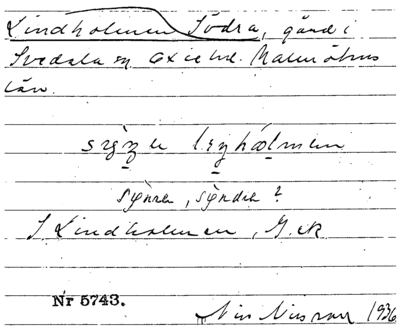 Lindholmen Södra, gård i
Svedala sn, Oxie hd. Malmöhus
län.
lɛŋhɔlmən
synra, syndra ?
S Lindholmen, G.ek
Nr 5743.
Nils Nilsson 1936